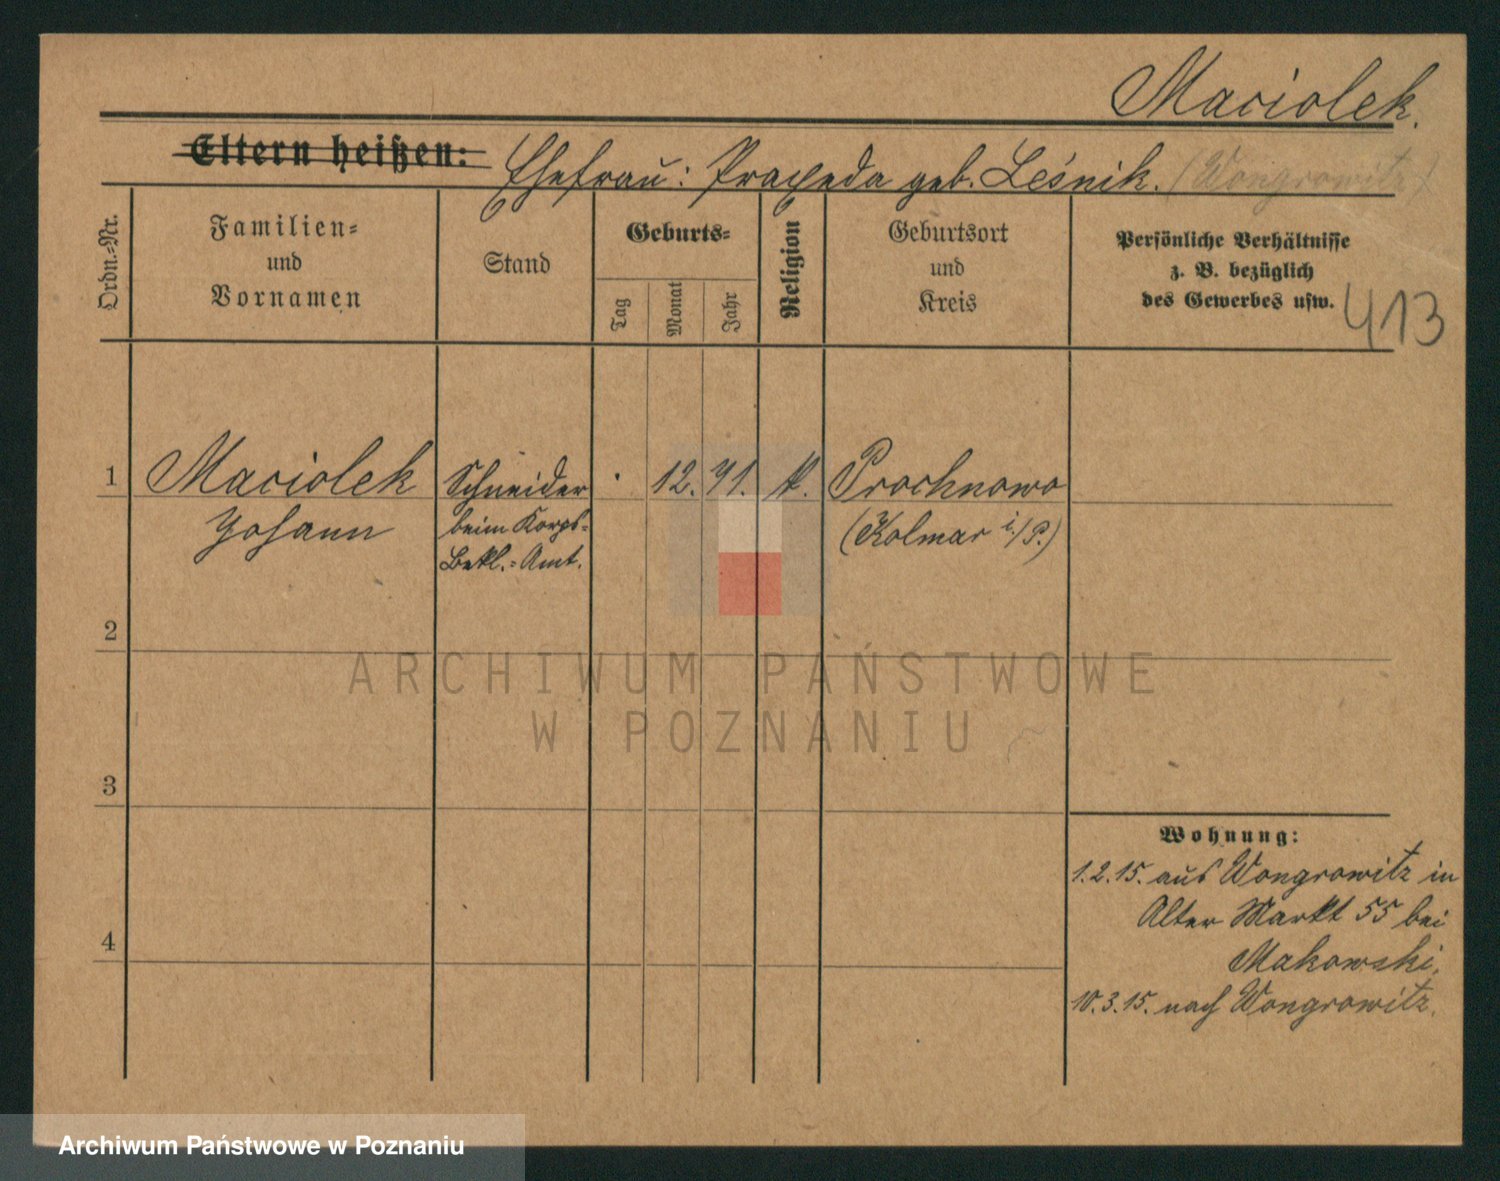 Maciolek.
Eltern heißen: Ehefrau: Praxeda geb. Leśnik. (Wongrowitz)
Ordn.-Nr.
Familien-
und
Vornamen
Stand
Geburts-
Tag
Monat
Jahr
Religion
Geburtsort
und
Kreis
Persönliche Verhältnisse
z. B. bezüglich
des Gewerbes usw.
413
1 Maciolek Schneider . 12. 71. k. Prochnowo
Johann beim Korps- (Kolmar i./P.)
Bekl.-Amt.
2
ARCHIWUM PAŃSTWOWE
W POZNANIU
3
Wohnung:
1.2.15. aus Wongrowitz in
Alter Markt 55 bei
4
Makowski.
10.3.15. nach Wongrowitz.
Archiwum Państwowe w Poznaniu